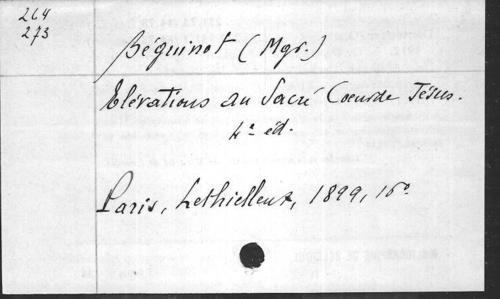 264
273
Béguinot (Mgr.)
Elévations au Sacré Coeur de Jésus.
4e éd.
Paris, Lethielleux, 1899, 16o